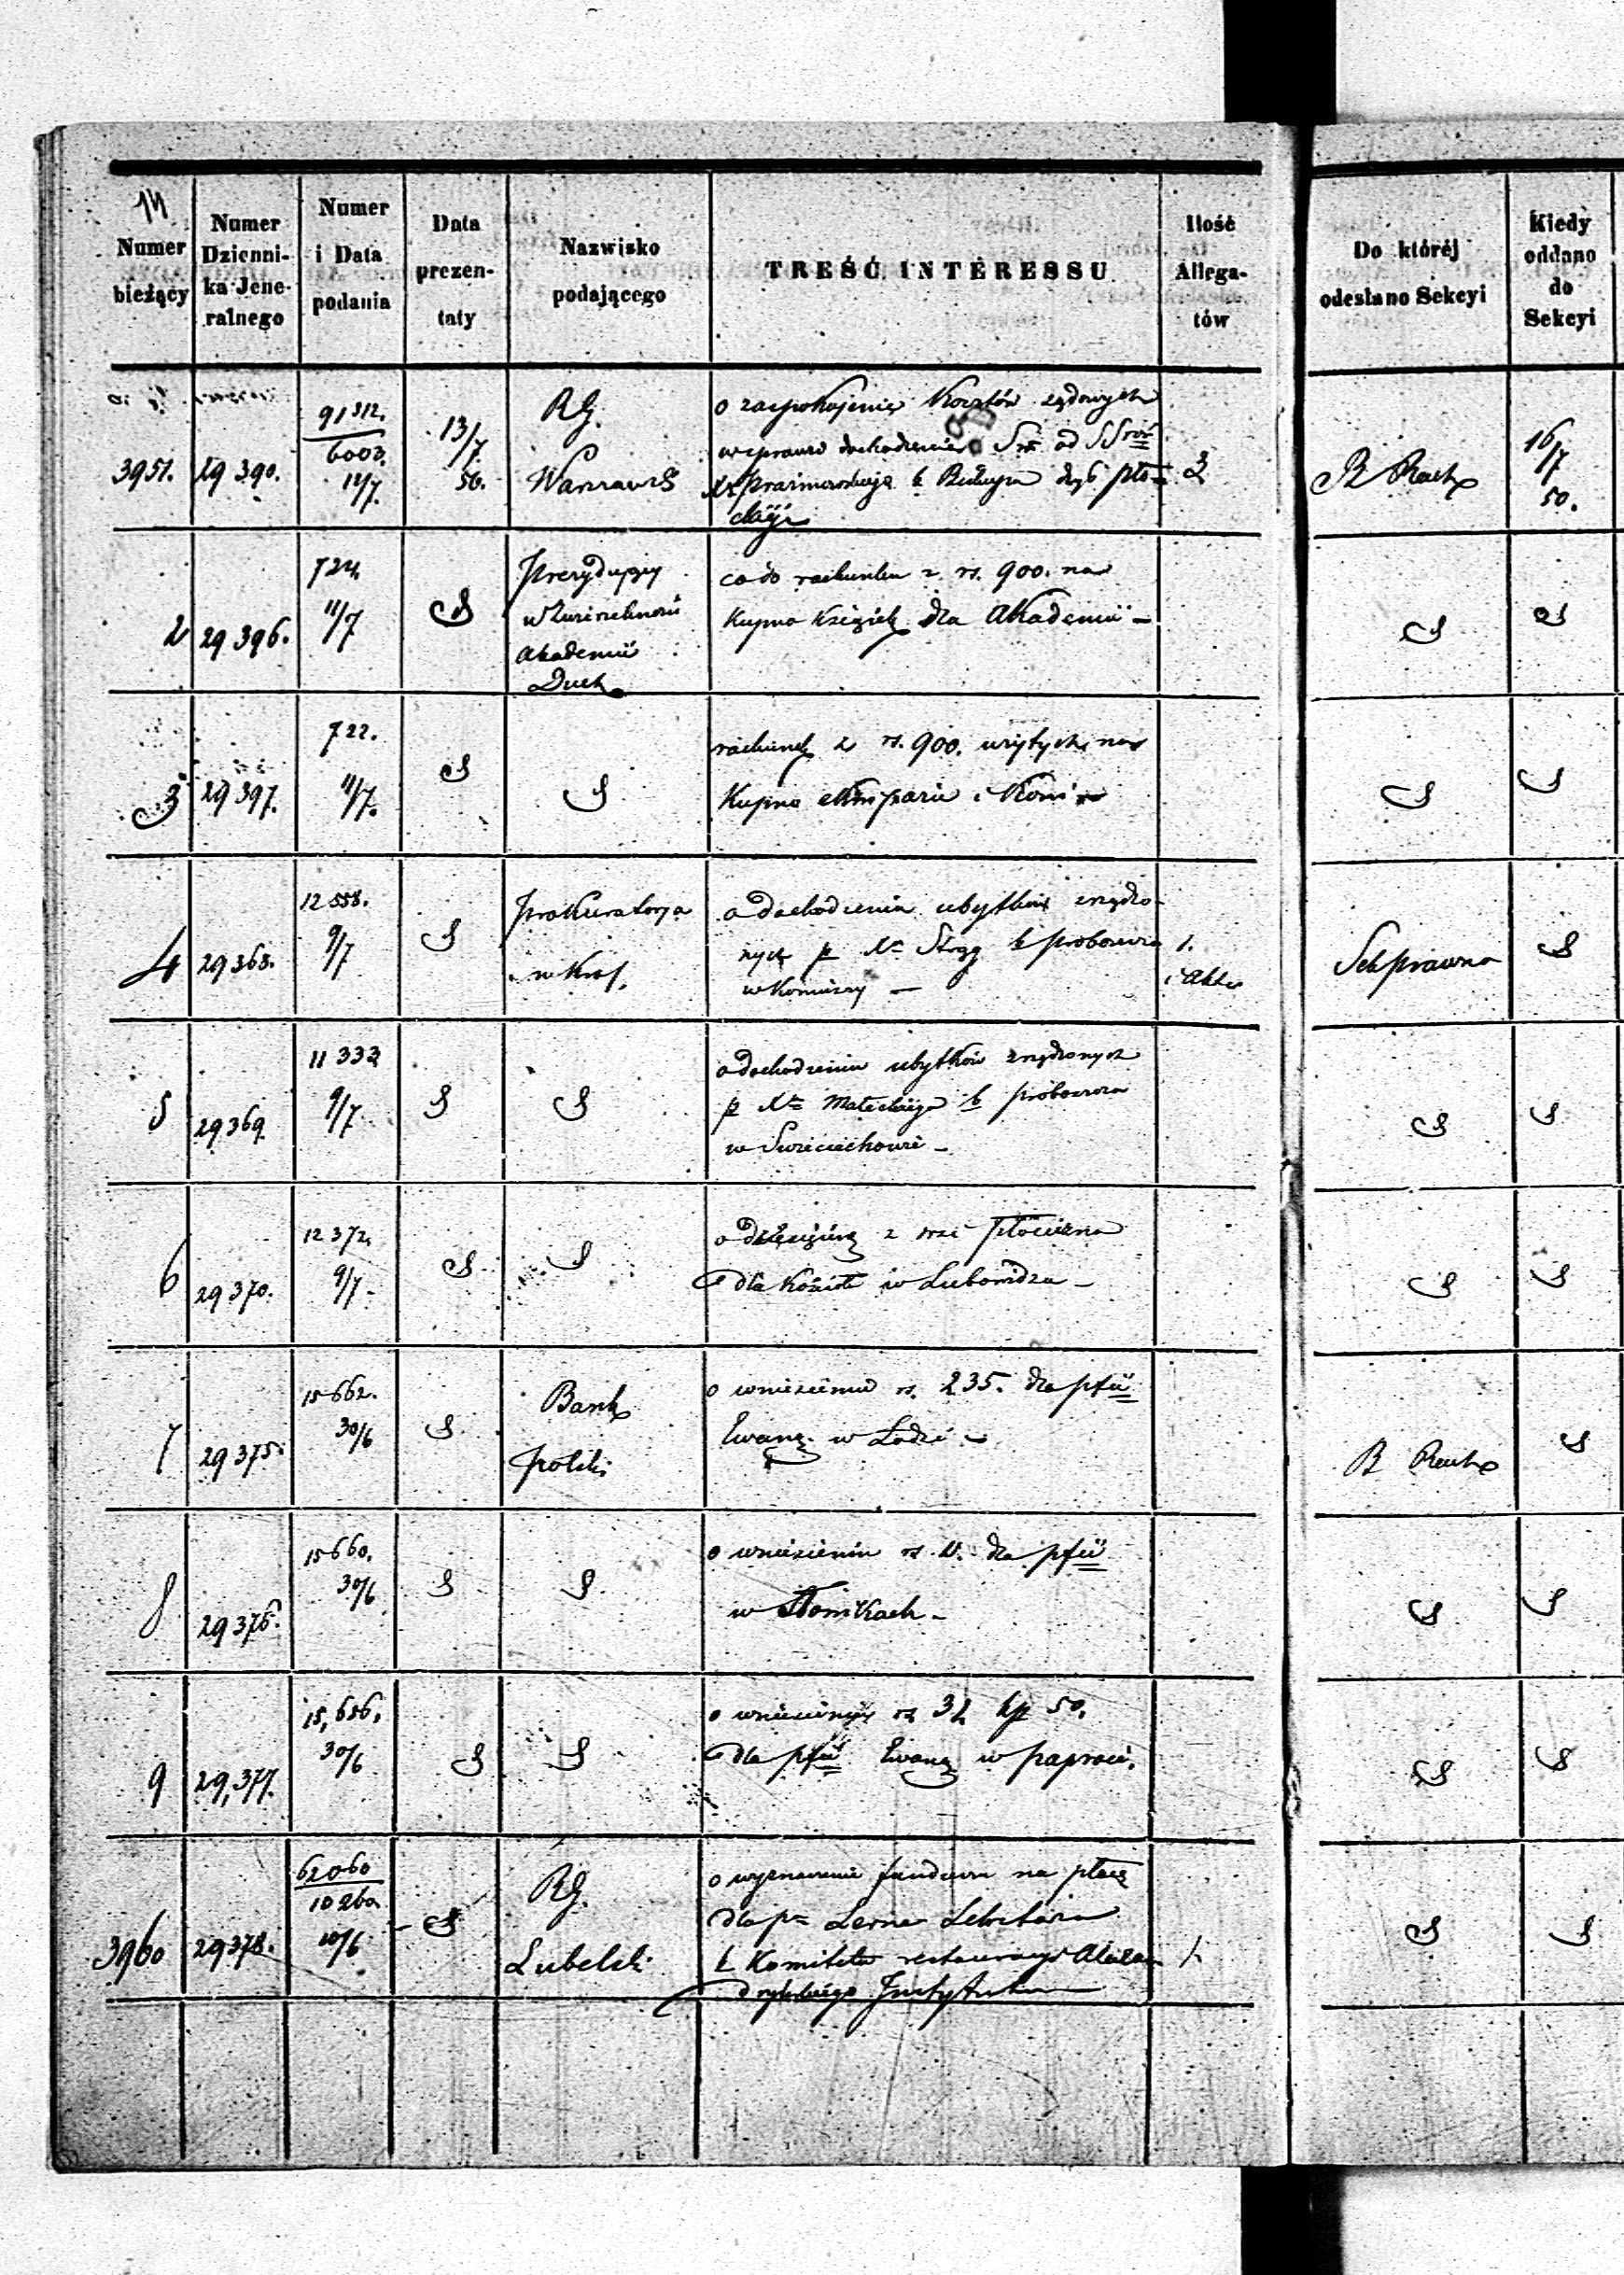 14
Numer
bieżący
Numer
Dzienni-
ka Jene-
ralnego
Numer
i Data
podania
Data
prezen-
taty
Nazwisko
podającego
TREŚĆ INTERESSU
Ilość
Allega-
tów
Do któréj
odesłano Sekcyi
Kiedy
oddano
do
Sekcyi
3951.
29 390.
91312.
6003.
12/7.
13/7.
50.
RG.
Warszawsk
o zaspokojenie Kosztów sądowych
w sprawie dochodzenia od
b
2
R Rach
16/7
50.
2
29 396.
724.
11/7
S
Prezydujący
w Zwierzchności
Akademii
Duch
co do rachunku z rs. 900. na
Kupno książek dla Akademii –
S
S
3
29 397.
722.
11/7.
S
S
rachunek z rs. 900. użytych na
Kupno i Koni
S
S
4
29 368.
12 558.
9/7
S
Prokuratorya
w Król.
o dochodzenia ubytków zrządzo-
nych p X Strąg b proboszcza
w –
1.
i Akta
Sek prawna
S
5
29 369.
11 332
9/7
S
S
o dochodzenia ubytków zrządzonych
p X Mateckiego b proboszcza
w Swieciechowie –
S
S
6
29 370.
12 372.
9/7 –
S
S
o dziesięcinę z wsi Płociczna
dla Kościoła w Lubowidzu –
S
S
7
29 375.
15 662.
30/6
S
Bank
polski
o wniesieniu rs. 235. dla pfii
Ewang. w Łodzi –
R Rach
S
8
29 376.
15 660.
30/6
S
S
o wniesieniu rs. dla pfii
w Słomkach –
S
S
9
29,377.
15,656.
30/6
S
S
o wniesieniu rs 32 kp 50.
dla pfii Ewang w paproci.
S
S
3960
29378.
62060
10260
10/6
S
RG.
Lubelski
o wyznaczenie funduszu na płacę
dla p Lerna Sekretarza
b Komitetu restauracyi
Instytutu
1.
S
S